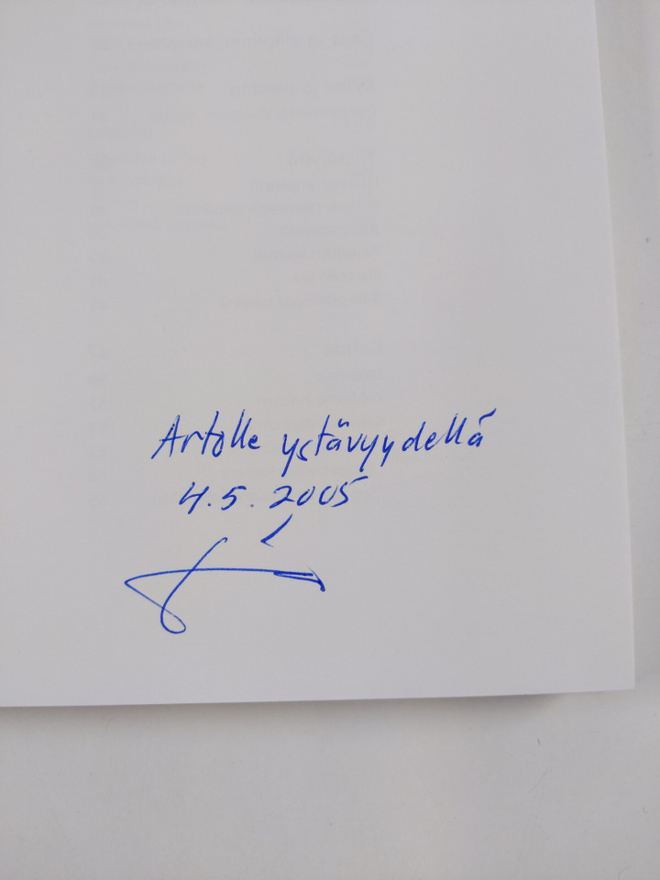 Artolle ystävyydellä
4.5.2005